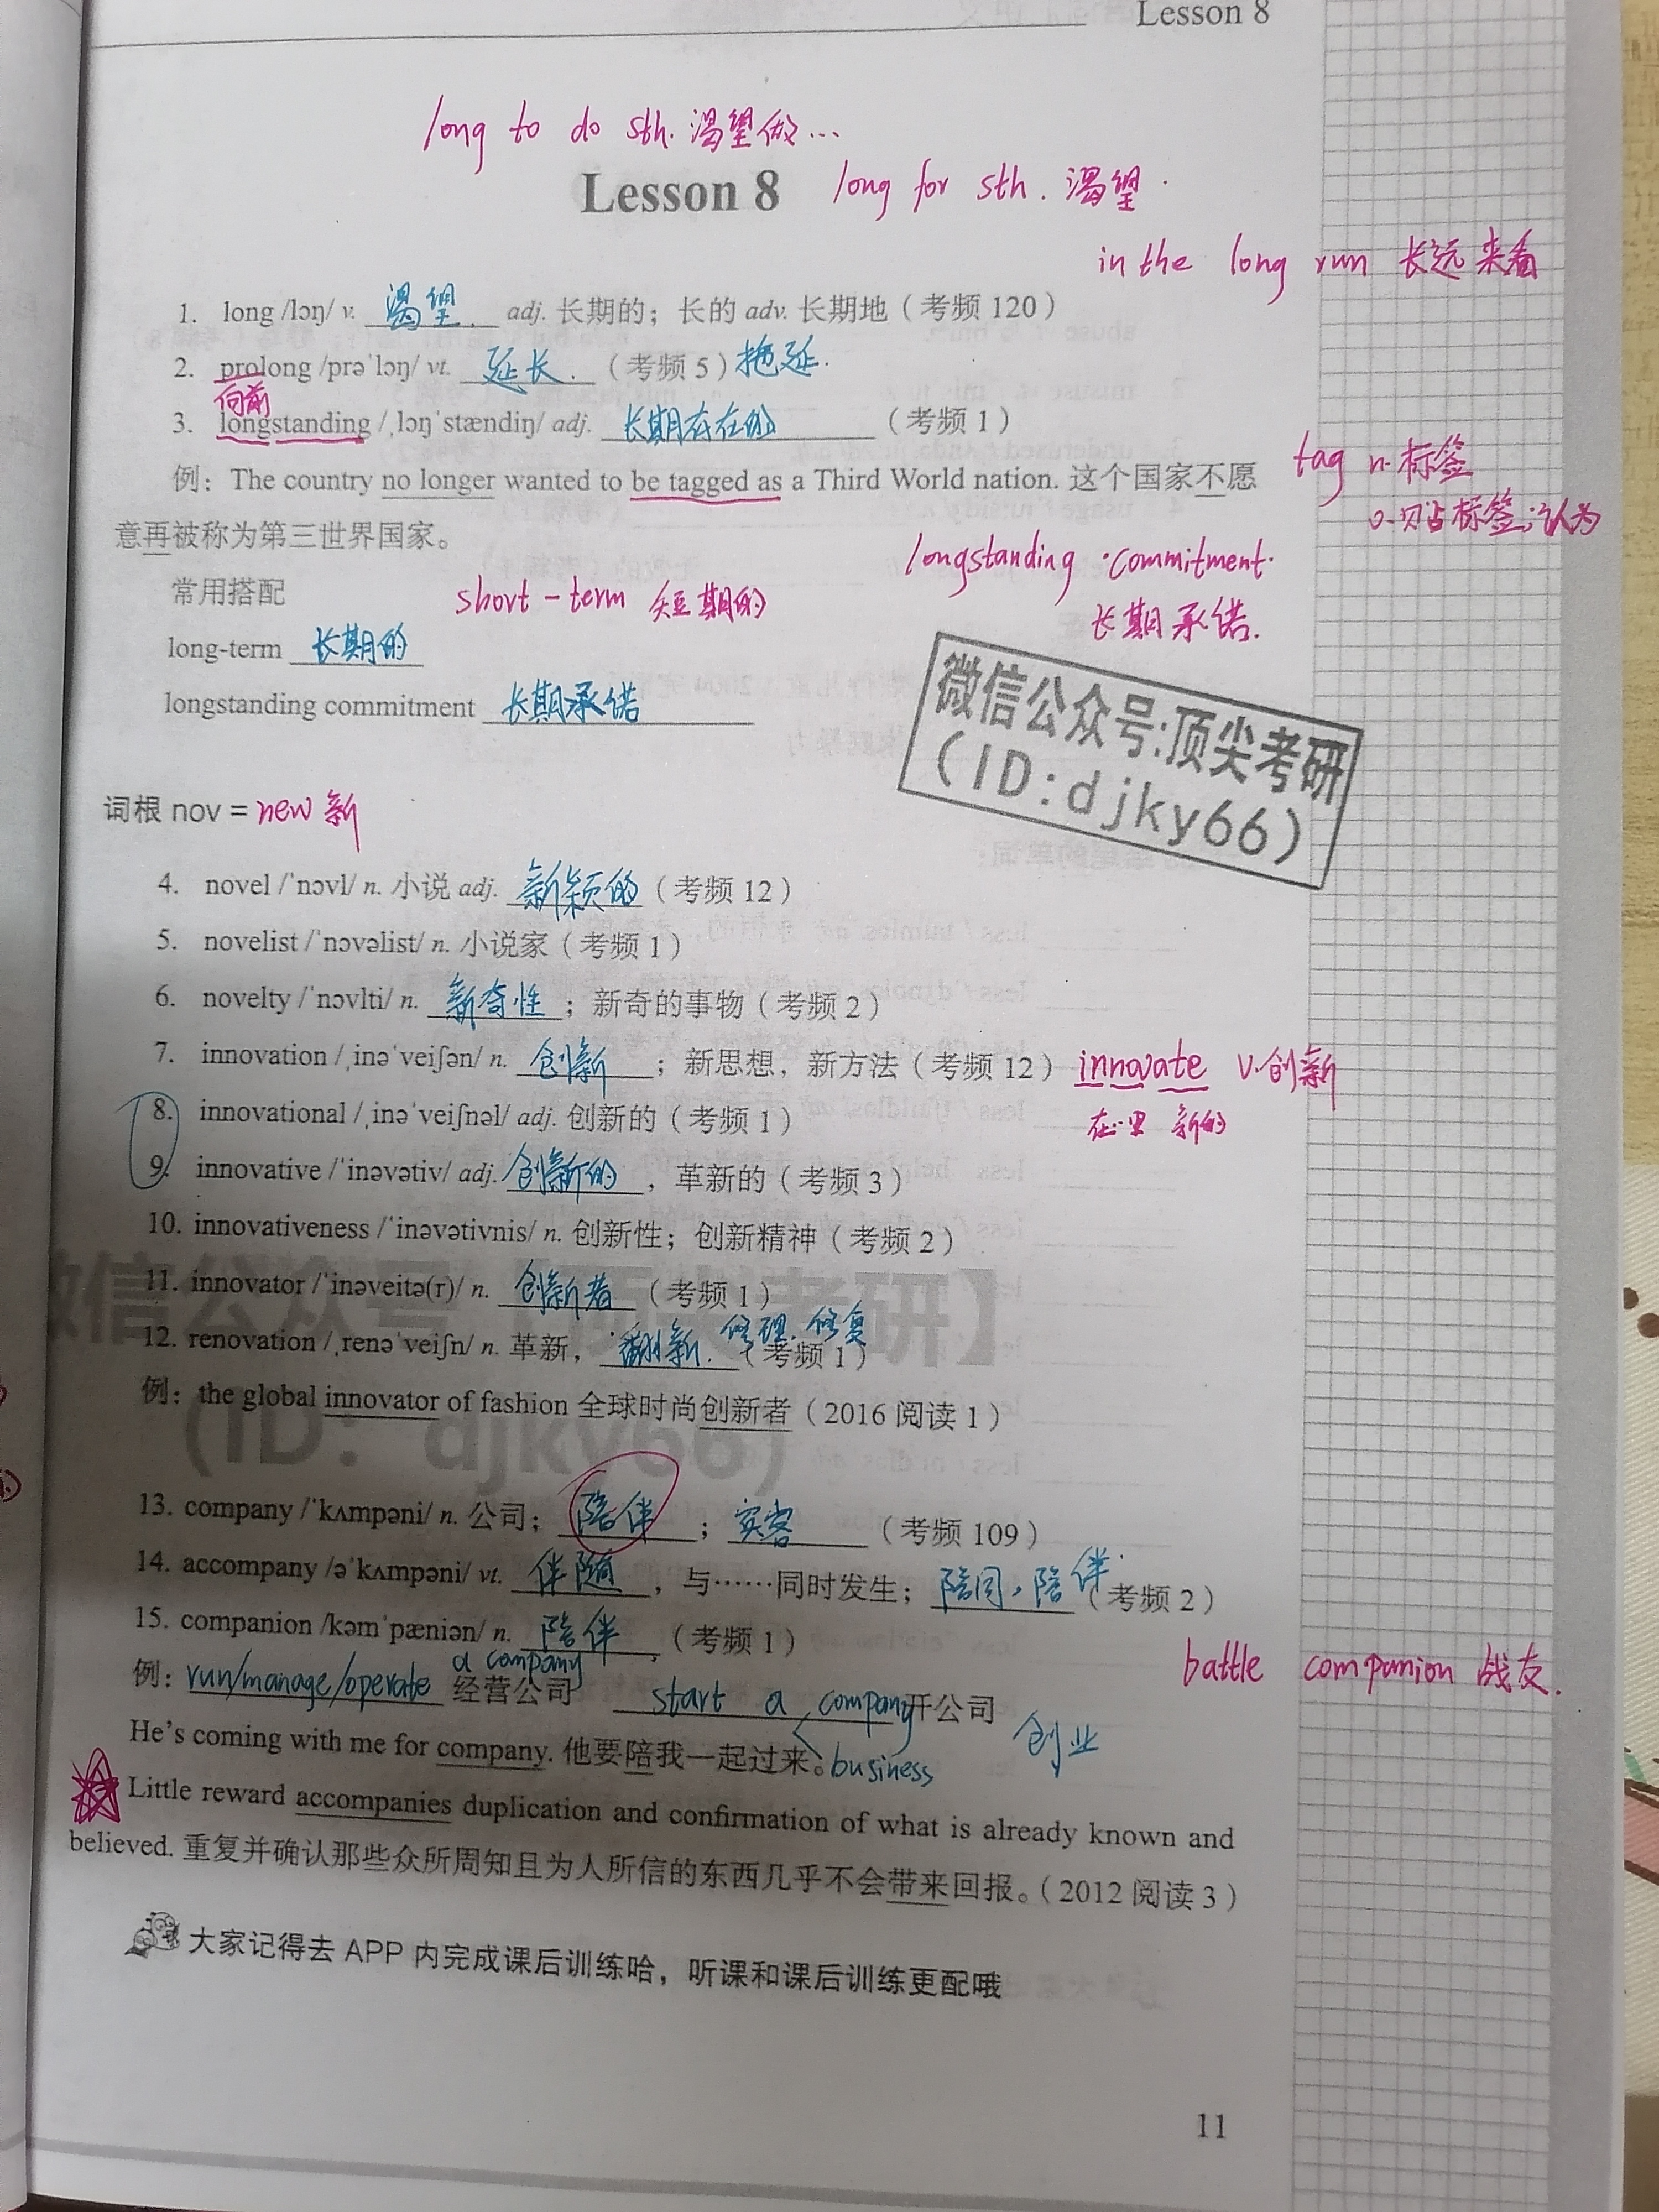 Lesson 8
long to do sth. 渴望做…
Lesson 8 long for sth. 渴望.
in the long run 长远来看
1. long /lɔŋ/ v. 渴望. adj. 长期的；长的 adv. 长期地（考频 120）
2. prolong /prəˈlɔŋ/ vt. 延长.（考频 5）拖延.
向前
3. longstanding /ˌlɔŋˈstændiŋ/ adj. 长期存在的（考频 1）
tag n.标签
例：The country no longer wanted to be tagged as a Third World nation. 这个国家不愿
v.贴标签;认为
意再被称为第三世界国家。
longstanding commitment.
长期承诺.
常用搭配
short-term 短期的
long-term 长期的
longstanding commitment 长期承诺
微信公众号:顶尖考研
(ID:djky66)
词根 nov = new 新
4. novel /ˈnɔvl/ n. 小说 adj. 新颖的（考频 12）
5. novelist /ˈnɔvəlist/ n. 小说家（考频 1）
6. novelty /ˈnɔvlti/ n. 新奇性；新奇的事物（考频 2）
7. innovation /ˌinəˈveiʃən/ n. 创新；新思想，新方法（考频 12）innovate v.创新
在…里 新的
8. innovational /ˌinəˈveiʃnəl/ adj. 创新的（考频 1）
9. innovative /ˈinəvətiv/ adj. 创新的，革新的（考频 3）
10. innovativeness /ˈinəvətivnis/ n. 创新性；创新精神（考频 2）
11. innovator /ˈinəveitə(r)/ n. 创新者（考频 1）
12. renovation /ˌrenəˈveiʃn/ n. 革新，翻新. 修理.修复（考频 1）
例：the global innovator of fashion 全球时尚创新者（2016 阅读 1）
(ID: djky66)
13. company /ˈkʌmpəni/ n. 公司；陪伴；宾客（考频 109）
14. accompany /əˈkʌmpəni/ vt. 伴随，与……同时发生；陪同，陪伴（考频 2）
15. companion /kəmˈpæniən/ n. 陪伴，（考频 1）
battle companion 战友.
例：run/manage/operate a company 经营公司 start a company 开公司
business 创业
He's coming with me for company. 他要陪我一起过来。
Little reward accompanies duplication and confirmation of what is already known and
believed. 重复并确认那些众所周知且为人所信的东西几乎不会带来回报。（2012 阅读 3）
大家记得去 APP 内完成课后训练哈，听课和课后训练更配哦
11